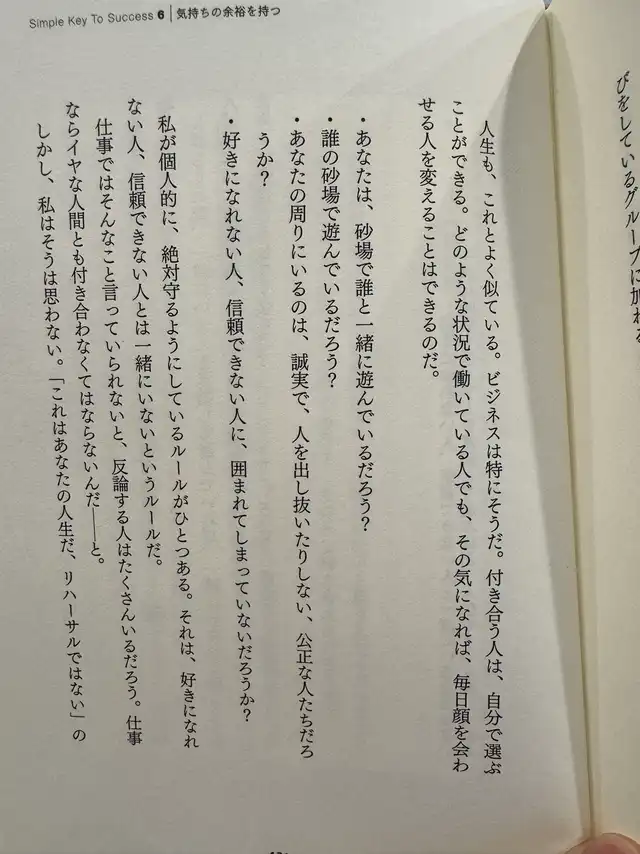 Simple Key To Success 6 | 気持ちの余裕を持つ
びをしているグループに加わる
人生も、これとよく似ている。ビジネスは特にそうだ。付き合う人は、自分で選ぶ
ことができる。どのような状況で働いている人でも、その気になれば、毎日顔を会わ
せる人を変えることはできるのだ。
・あなたは、砂場で誰と一緒に遊んでいるだろう？
・誰の砂場で遊んでいるだろう？
・あなたの周りにいるのは、誠実で、人を出し抜いたりしない、公正な人たちだろ
うか？
・好きになれない人、信頼できない人に、囲まれてしまっていないだろうか？
私が個人的に、絶対守るようにしているルールがひとつある。それは、好きになれ
ない人、信頼できない人とは一緒にいないというルールだ。
仕事ではそんなこと言っていられないと、反論する人はたくさんいるだろう。仕事
ならイヤな人間とも付き合わなくてはならないんだ――と。
しかし、私はそうは思わない。「これはあなたの人生だ、リハーサルではない」の